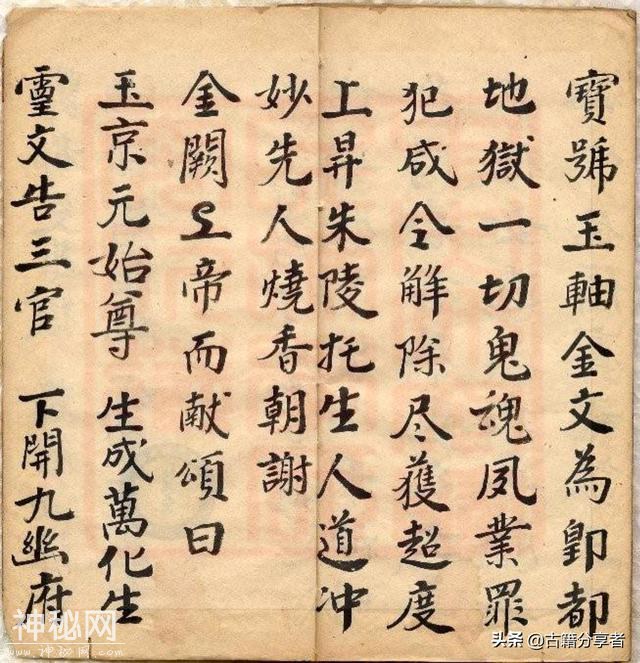 寶號玉軸金文為都
地獄一切鬼魂夙業罪
犯咸令解除尽獲超度
上昇朱陵托生人道冲
妙先人燒香朝謝
金闕上帝而献頌曰
玉京元始尊 生成萬化生
霊文告三官 下開九幽府
神秘网
头条 @古籍分享者